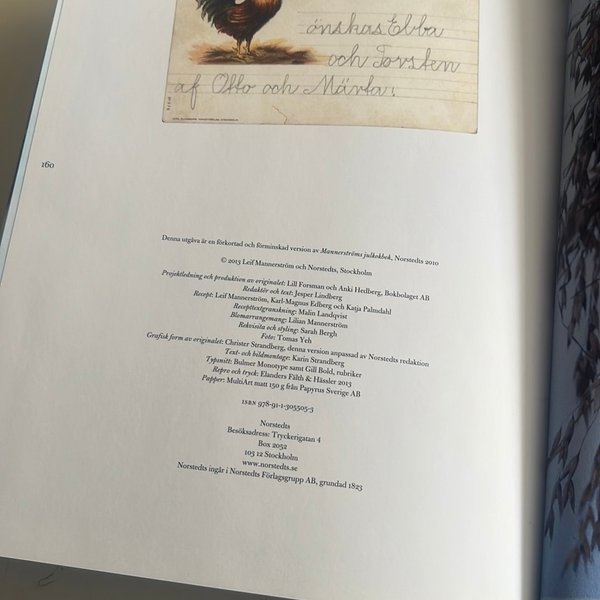 önskas Ebba
och Torsten
af Otto och Märta.
160
Denna utgåva är en förkortad och förminskad version av Mannerströms julkokbok, Norstedts 2010
© 2013 Leif Mannerström och Norstedts, Stockholm
Projektledning och produktion av originalet: Lill Forsman och Anki Hedberg, Bokbolaget AB
Redaktör och text: Jesper Lindberg
Recept: Leif Mannerström, Karl-Magnus Edberg och Katja Palmdahl
Recepttextgranskning: Malin Landqvist
Blomarrangemang: Lilian Mannerström
Rekvisita och styling: Sarah Bergh
Foto: Tomas Yeh
Grafisk form av originalet: Christer Strandberg, denna version anpassad av Norstedts redaktion
Text- och bildmontage: Karin Strandberg
Typsnitt: Bulmer Monotype samt Gill Bold, rubriker
Repro och tryck: Elanders Fälth & Hässler 2013
Papper: MultiArt matt 150 g från Papyrus Sverige AB
ISBN 978-91-1-305505-3
Norstedts
Besöksadress: Tryckerigatan 4
Box 2052
103 12 Stockholm
www.norstedts.se
Norstedts ingår i Norstedts Förlagsgrupp AB, grundad 1823